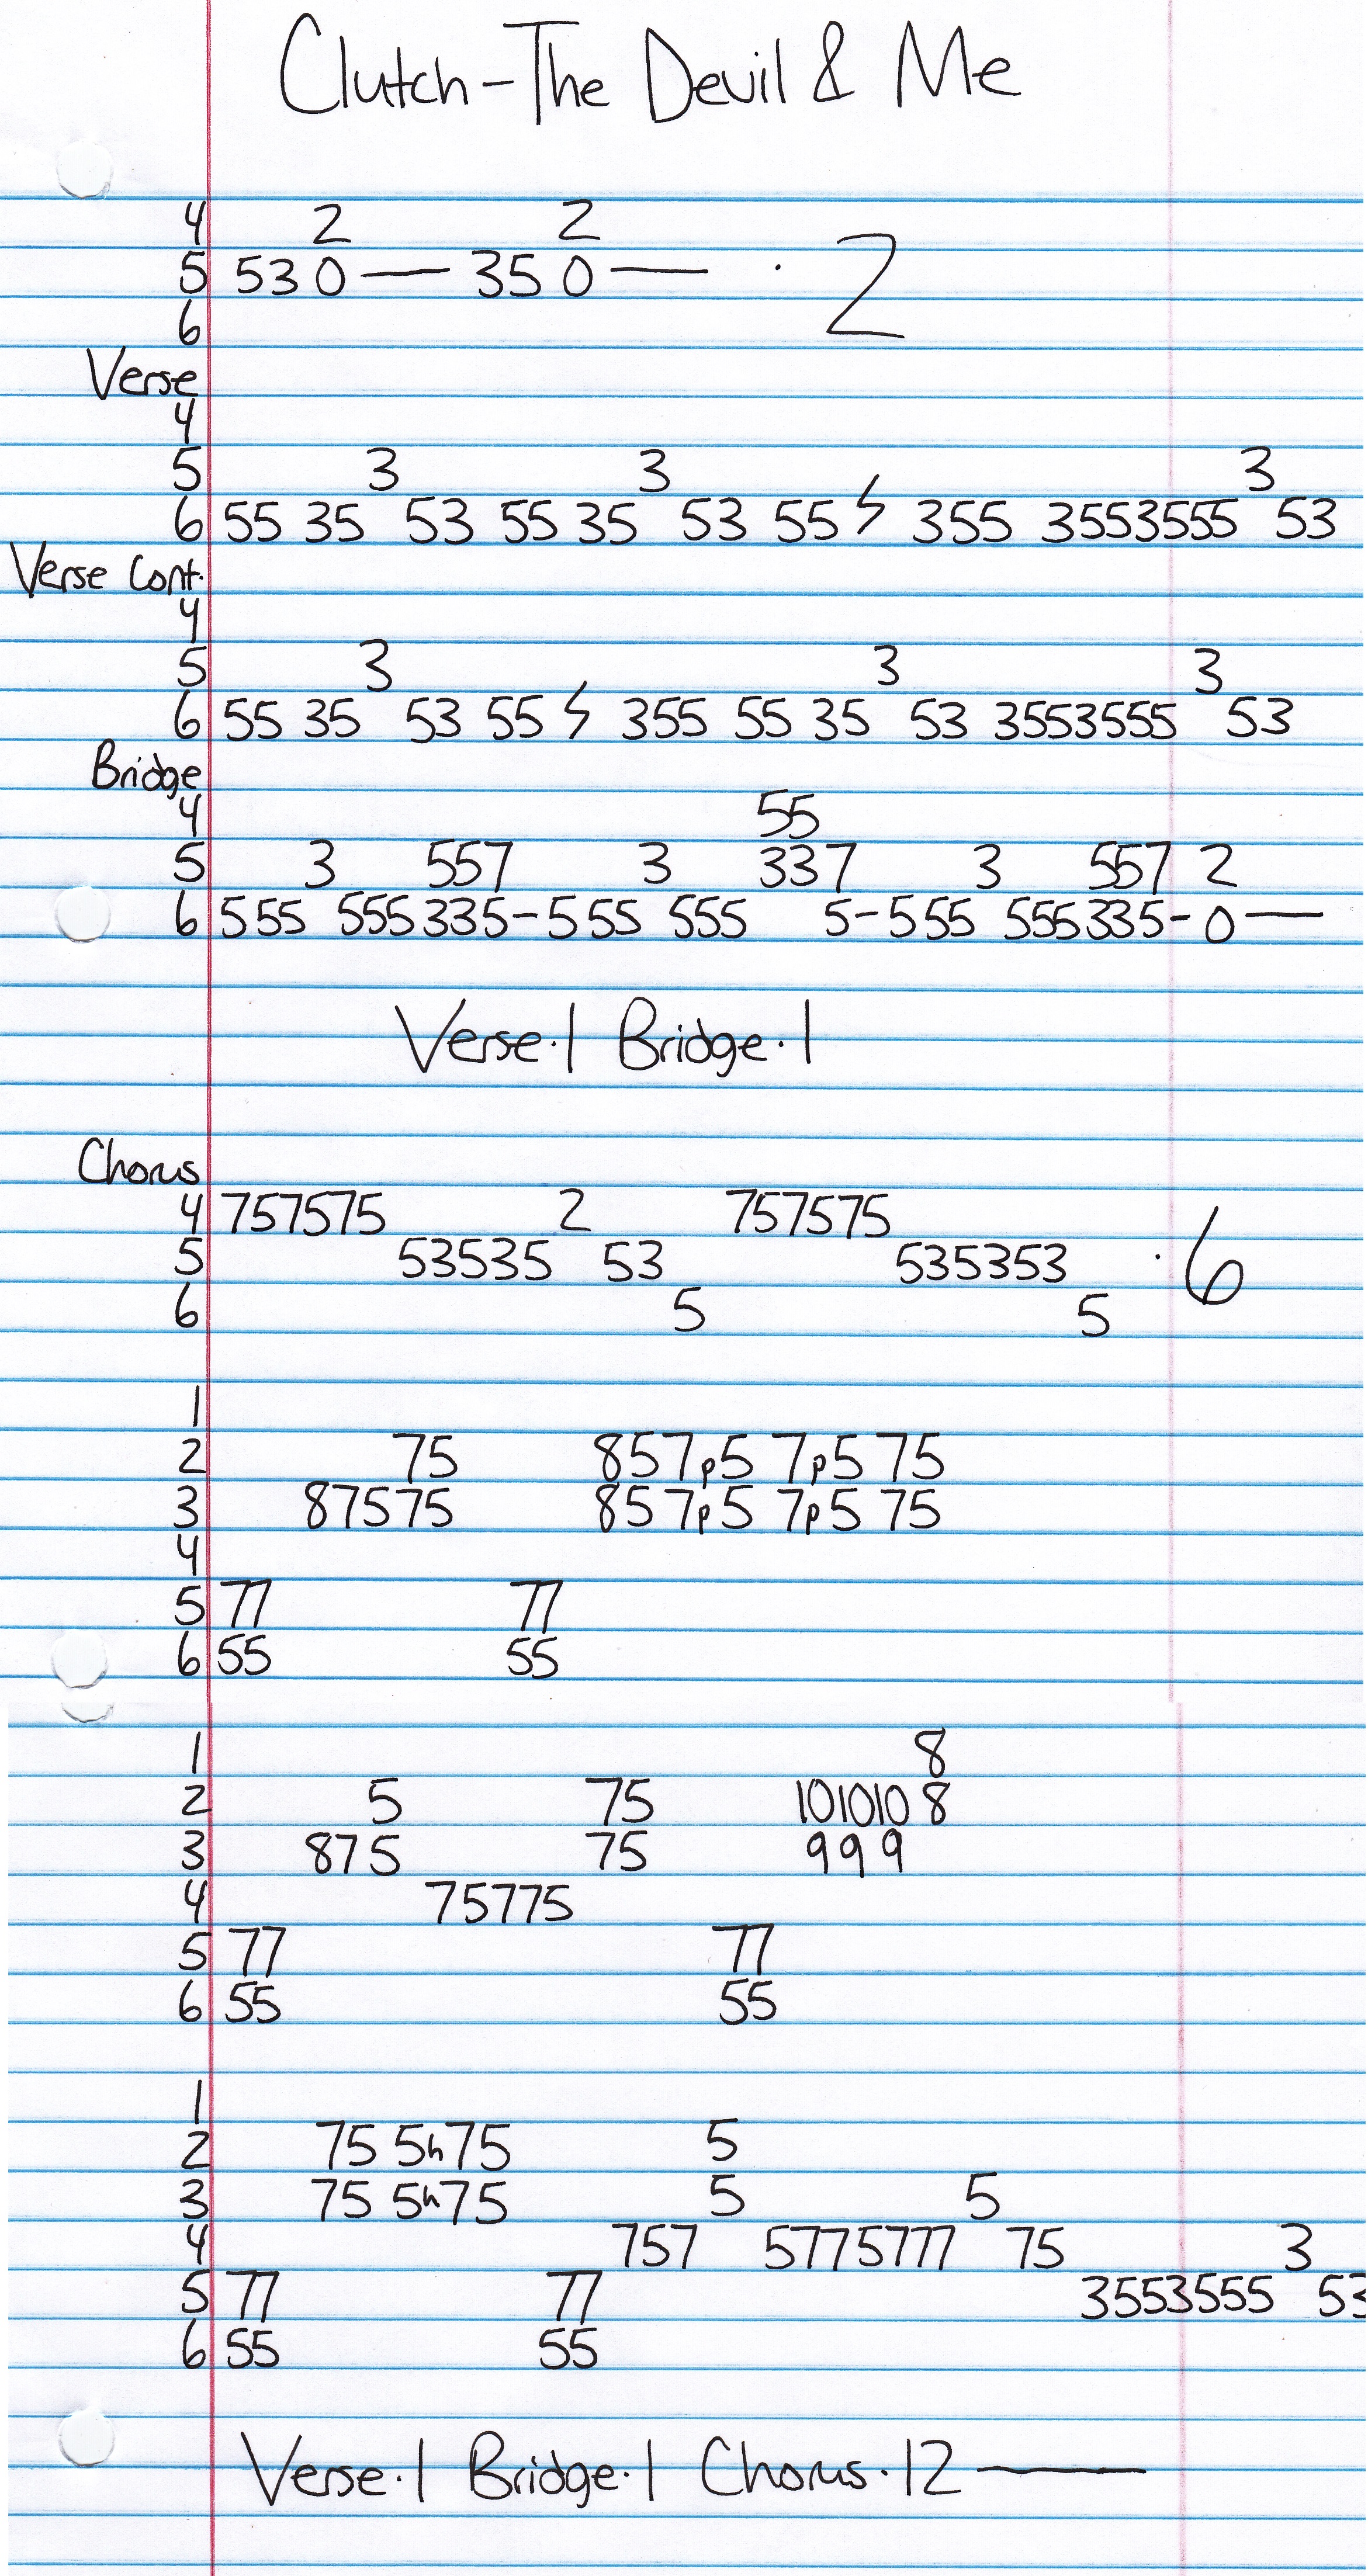 Clutch - The Devil & Me
4 2 2
5 530 — 350 — · 2
6
Verse
4
5 3 3 3
6 55 35 53 55 35 53 55 ϟ 355 3553555 53
Verse Cont.
4
5 3 3 3
6 55 35 53 55 ϟ 355 55 35 53 3553555 53
Bridge
4 55
5 3 557 3 337 3 557 2
6 555 555335-555 555 5-555 555335-0—
Verse·1 Bridge·1
Chorus
4 757575 2 757575
5 53535 53 535353 · 6
6 5 5
1
2 75 857p5 7p5 75
3 87575 857p5 7p5 75
4
5 77 77
6 55 55
1 8
2 5 75 101010 8
3 875 75 999
4 75775
5 77 77
6 55 55
1
2 75 5h75 5
3 75 5h75 5 5
4 757 5775777 75 3
5 77 77 3553555 53
6 55 55
Verse·1 Bridge·1 Chorus·12 —